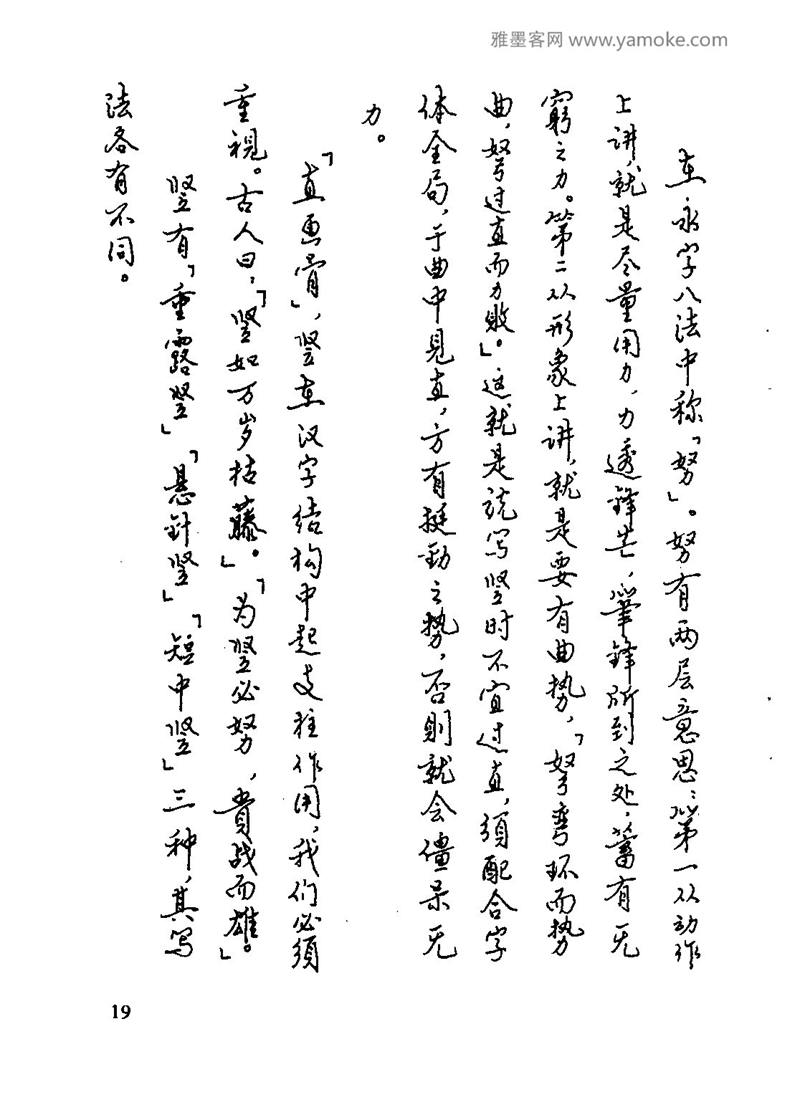 雅墨客网 www.yamoke.com
在永字八法中称「努」。努有两层意思：第一从动作
上讲，就是尽量用力，力透锋芒，笔锋所到之处，蓄有无
窮之力。第二从形象上讲，就是要有曲势，「弩弯环而势
曲，弩过直而力败。」这就是说写竖时不宜过直，须配合字
体全局，于曲中见直，方有挺劲之势，否则就会僵呆无
力。
「直画骨」，竖在汉字结构中起支柱作用，我们必须
重視。古人曰，「竖如万岁枯藤。」「为竖必努，貴战而雄。」
竖有「垂露竖」「悬針竖」「短中竖」三种，其写
法各有不同。
19